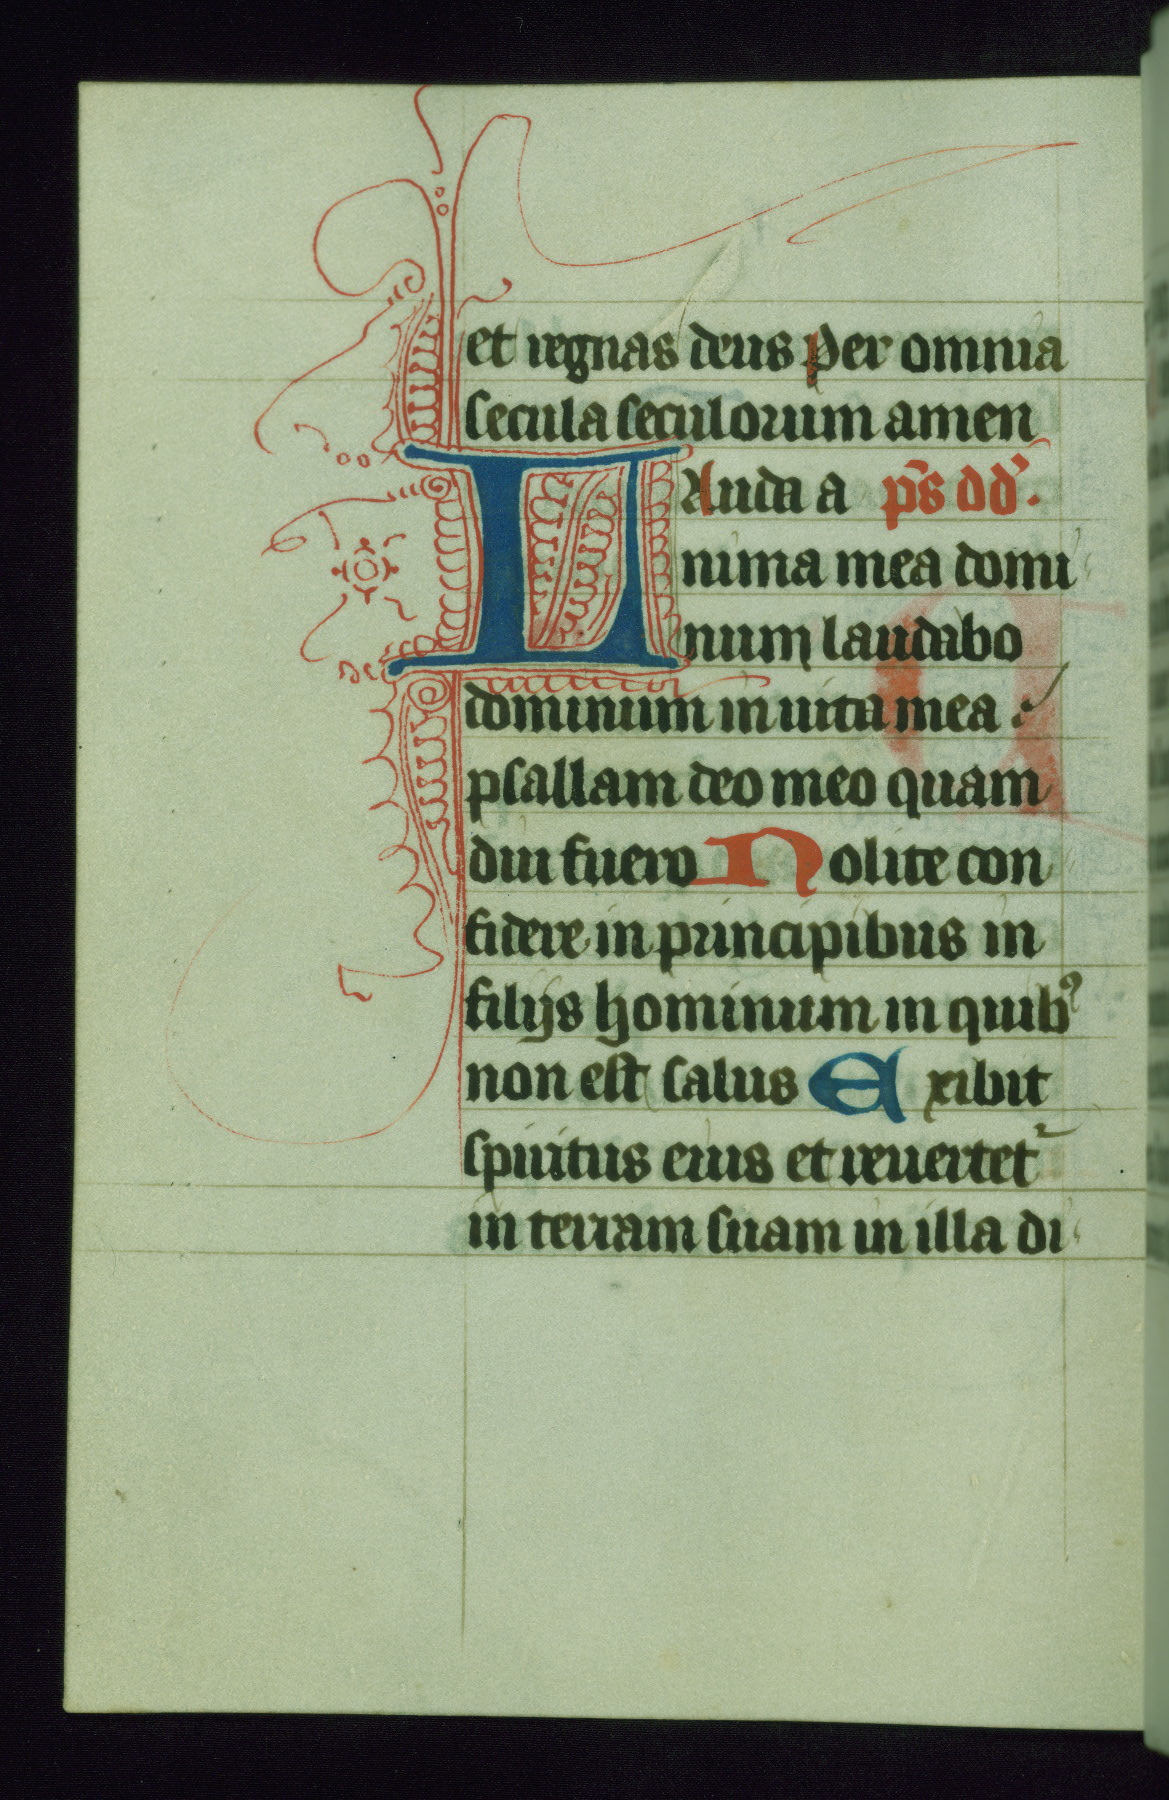 et regnas deus per omnia
secula seculorum amen
LAuda a p̄s dd̉.
nima mea domi
num laudabo
dominum in uita mea
psallam deo meo quam
diu fuero Nolite con
fidere in principibus in
filijs hominum in quibꝰ
non est salus Exibit
spiritus eius et reuertet᷑
in terram suam in illa di